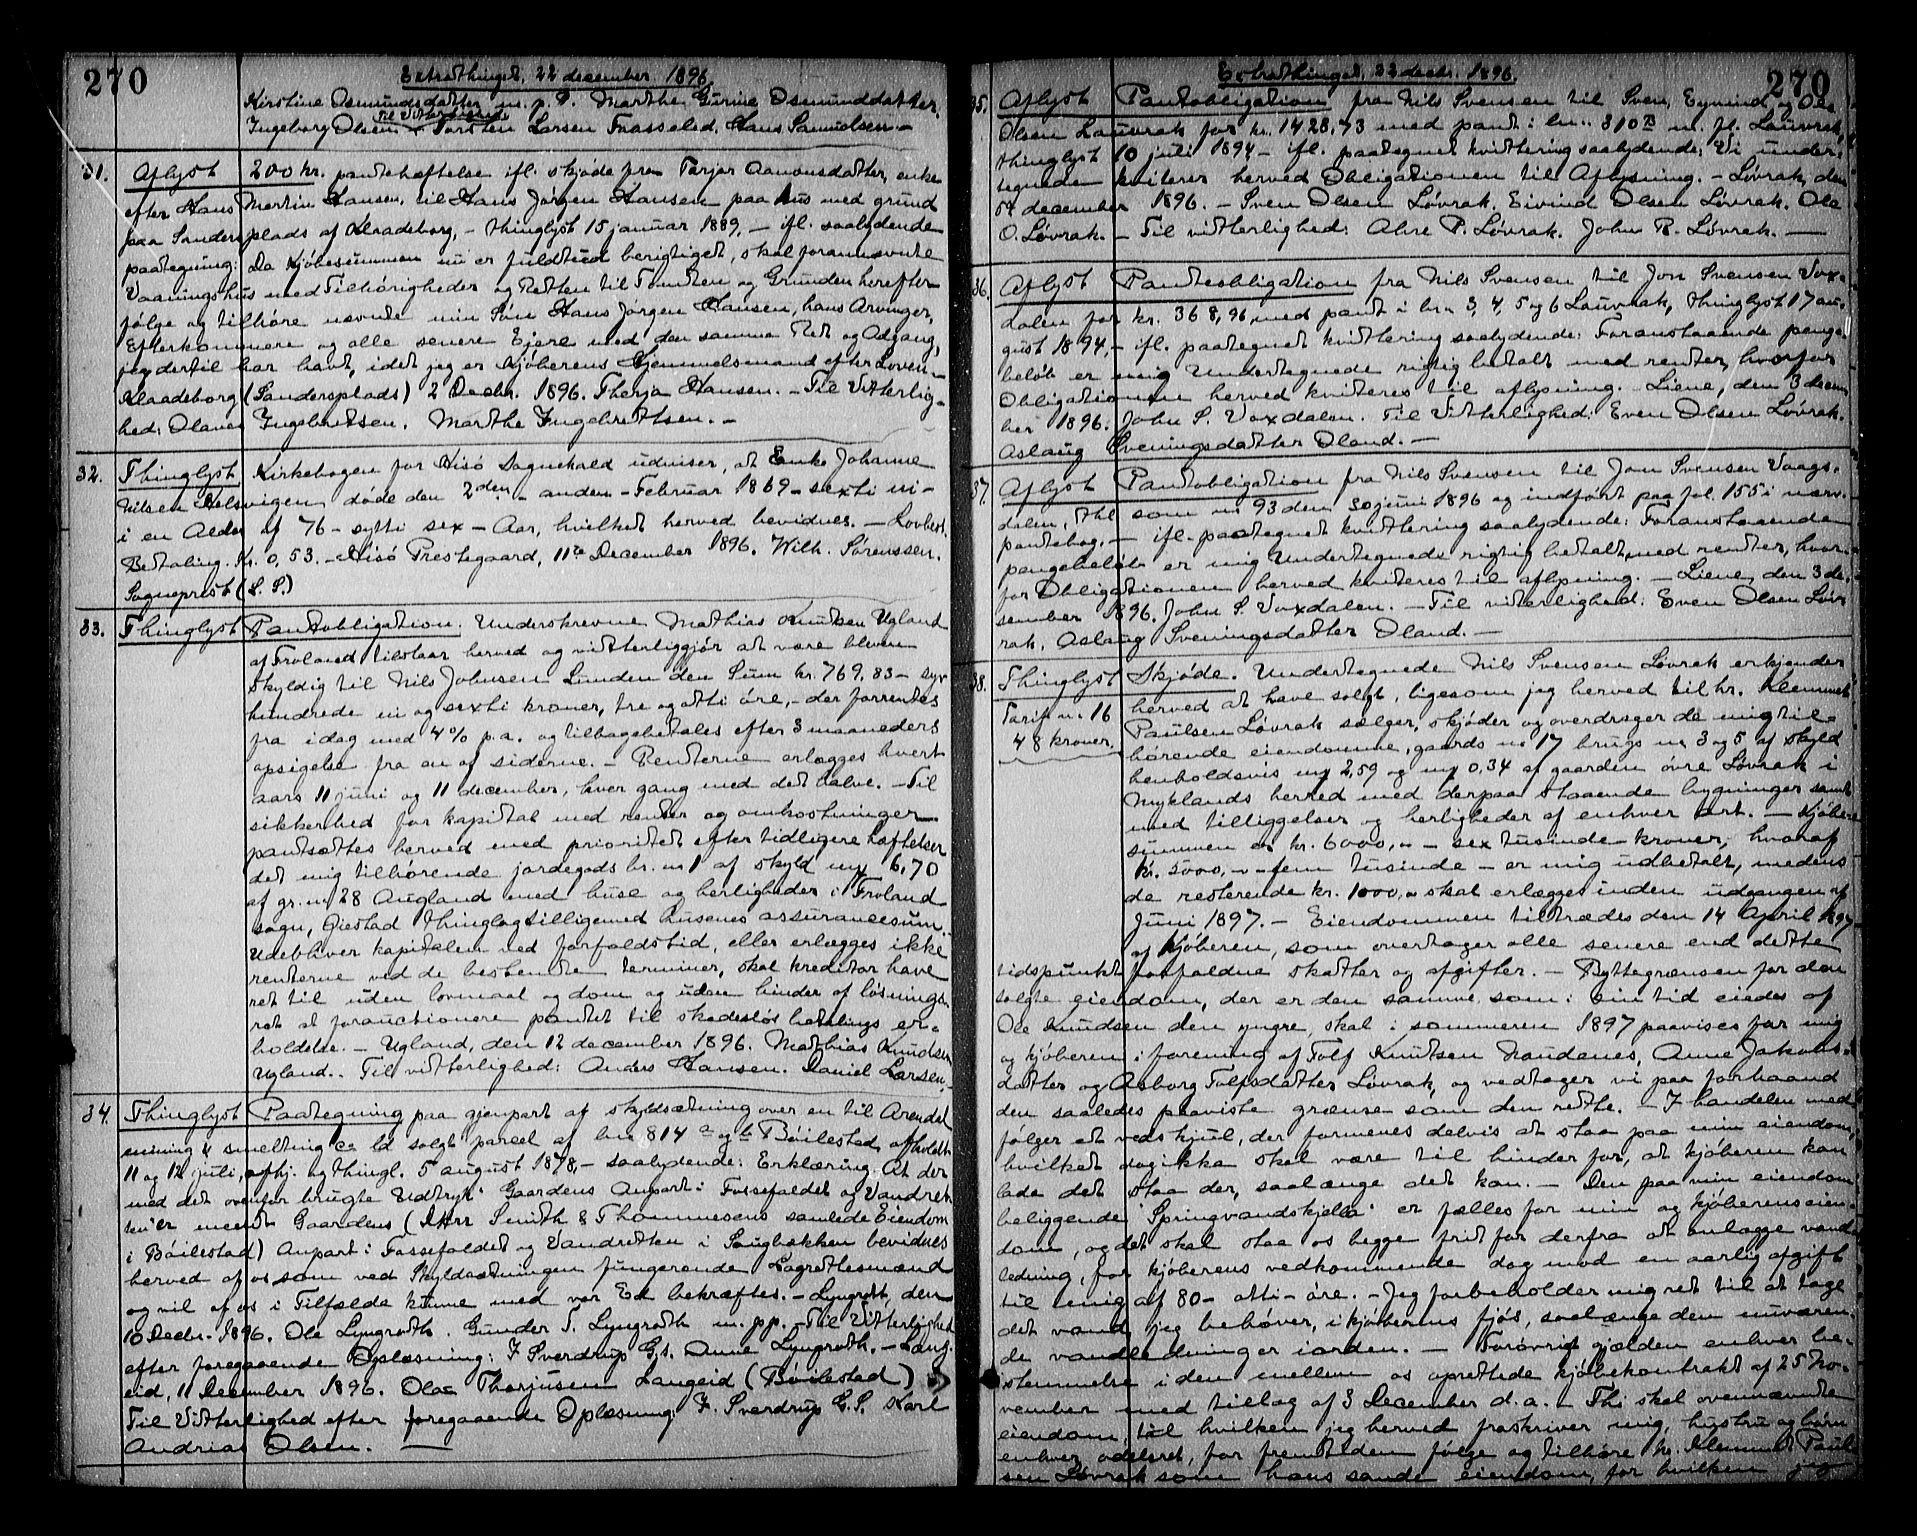 270
Extrathinget, 22 december 1896.
Kirstine Osmundsdatter m. p. P. Marthe Gurine Osmunddatter.
Til Vitterlighed
Ingeborg Olsen Torsten Larsen Hans Samuelsen.—
31. Aflyst 200 kr. panteheftelse ifl. skjøde fra Tarjer Aamonsdatter, enke
efter Hans Martin Hansen, til Hans Jørgen Hansen paa hus med grund
paa Sandersplads af Klaadeborg,- thinglyst 15 januar 1889,- ifl. saalydende
paategning: Da Kjøbesummen nu er fuldtud berigtiget, skal forannævnte
Vaaningshus med Tilhørigheder og Retten til Tomten og Grunden herefter
følge og tilhøre nævnte min Søn Hans Jørgen Hansen, hans Arvinger,
Efterkommere og alle senere Ejere med den samme Ret og Adgang,
jeg dertil har havt, idet jeg er Kjøberens Hjemmelsmand efter Loven.-
Klaadeborg (Sandersplads) 2 Decbr. 1896. Therja Hansen. - Til Vitterlig-
hed: Olaves Ingebretsen. Marthe Ingebrethsen.-
32. Thinglyst Kirkebogen for Hisø Sognekald udviser, at Enke Johanne
Nilsen Kolsvigen døde den 2den - anden - Februar 1869 - sexti ni -
i en Alder af 76 - sytti sex - Aar, hvilket herved bevidnes. - Lovbest.
Betaling Kr. 0,53. - Hisø Prestegaard, 11te December 1896. Wilh. Sørenssen.
Sogneprest (L. S.)
33. Thinglyst Pantobligation. Underskrevne Mathias Knutsen Ugland
af Froland tilstaar herved og vitterliggjør at være bleven
skyldig til Nils Johnsen Lunden den Sum kr. 769,83 - syv
hundrede ni og sexti kroner, tre og otti øre, - der forrentes
fra idag med 4% p.a. og tilbagebetales efter 3 maaneders
opsigelse fra en af siderne. - Renterne erlægges hvert
aars 11 juni og 11 december, hver gang med det halve. - Til
sikkerhed for kapital med renter og omkostninger
pantsættes herved med prioritet efter tidligere hæftelser
det mig tilhørende jordegods br. no 1 af skyld my 6,70
af gr. no 28 Augland med huse og herligheder i Froland
sogn, Øiestad thinglag tilligemed husenes assurancesum.
Udebliver kapitalen ved forfaldstid, eller erlægges ikke
renterne ved de bestemte terminer, skal kreditor have
ret til uden lovmaal og dom og uden hinder af løsnings-
ret at forauctionere pantet til skadesløs betalings er-
holdelse. - Ugland, den 12 december 1896. Mathias Knudsen
Ugland.. Til vitterlighed: Anders Hansen. Daniel Larsen.
34. Thinglyst Paategning paa gjenpart af skyldsætning over en til Arendal
mining & smelting co ld solgt parcel af lno 814 a og b Bøilestad, afholdt
11 og 12 juli, afhj. og thingl. 5 august 1878,- saalydende: Erklæring. At der
med det ovenfor brugte Udtryk "Gaardens Anpart i Fossefaldet og Vandret-
ten" er meent Gaardens (DHrr Smith & Thommesens samlede Eiendom
i Bøilestad) Anpart i Fossefaldet og Vandretten i Saugbækken bevidnes
herved af os som ved Skyldsætningen fungerende Lagrettesmænd
og vil af os i Tilfælde kunne med vor Ed bekræftes. - Lyngroth, den
10 Decbr. 1896. Ole Lyngroth. Gunder T. Lyngroth m. p.p. - Til Vitterlighed
efter foregaaende Oplæsning: F Sverdrup G.S. Anne Lyngroth. - Lang-
eid, 11 December 1896. Olac Thorjusen Langeid (Bøilestad)
Til Vitterlighed efter foregaaende Oplæsning: F. Sverdrup G.S. Karl
Andrias Olsen. —
Extrathinget, 22 decbr. 1896.
270
35. Aflyst Pantobligation fra Nils Svensen til Sven, Eyvind og Ole
Olsen Lauvrak for kr. 1428,73 med pant i lno. 310 B m. fl. Lauvrak,
thinglyst 10 juli 1894 - ifl. paategnet kvittering saalydende: Vi under-
tegnede kviterer herved Obligationen til Aflysning. - Løvrak, den
december 1896. - Sven Olsen Løvrak. Eivind Olsen Løvrak. Ole
O. Løvrak. - Til vitterlighed: P. Løvrak. John R. Løvrak. —
36. Aflyst Panteobligation fra Nils Svensen til Jon Svensen Vox-
dalen for kr. 368,96 med pant i br. no 3, 4, 5 og 6 Lauvrak, thinglyst 17 au-
gust 1894,- ifl. paategnet kvittering saalydende: Foranstaaende penge-
beløb er mig Undertegnede rigtig betalt med renter, hvorfor
Obligationen herved kviteres til aflysning. - Liene, den 3 decem
ber 1896. John S. Voxdalen. Til Vitterlighed: Even Olsen Løvrak.
Aslaug Sveningsdatter Oland.-
37. Aflyst Pantobligation fra Nils Svensen til Jon Svensen Vaags-
dalen, thl som no 93 den 30 juni 1896 og indført paa fol. 155 i nærv.
pantebog,- ifl. paategnet kvittering saalydende: Foranstaaende
pengebeløb er mig Undertegnede rigtig betalt med renter, hvor-
for Obligationen herved kviteres til aflysning. - Liene, den 3 de-
sember 1896. John S. Voxdalen. - Til vitterlighed: Even Olsen Løv-
rak, Aslaug Sveningsdatter Oland. -
38. Thinglyst Skjøde. Undertegnede Nils Svensen Løvrak erkjender
Tarif no. 16
48 kroner.
herved at have solgt, ligesom jeg herved til hr. Klemmet
Paulsen Løvrak sælger, skjøder og overdrager de mig til-
hørende eiendomme, gaards no 17 brugs no 3 og 5 af skyld
henholdsvis my 2,59 og my 0,34 af gaarden øvre Løvrak i
Myklands herred med derpaa staaende bygninger samt
med tilliggelser og herligheder af enhver art. - Kjøbe-
summen er kr. 6000,- - sex tusinde - kroner, hvoraf
kr. 5000,- - fem tusinde - er mig udbetalt, medens
de resterende kr. 1000,- skal erlægges inden udgangen af
Juni 1897. - Eiendommen tiltrædes den 14 April 1897
af Kjøberen, som overtager alle senere end dette
tidspunkt forfaldne skatter og afgifter. - Byttegrænsen for den
solgte eiendom, der er den samme som i sin tid eiedes af
Ole Knudsen den yngre, skal i sommeren 1897 paavises for mig
og kjøberen i forening af Tolf Knutsen Haudanes, Anne Jakobs-
datter og Asborg Tolfsdatter Løvrak, og vedtager vi paa forhaand
den saaledes paaviste grænse som den rette. - I handelen med
følger et vedskjul, der formenes delvis at staa paa min eiendom,
hvilket dog ikke skal være til hinder for, at kjøberen kan
lade det staa der, saalænge det kan. - Den paa min eiendom
beliggende "Springvandskjella" er fælles for min og kjøberens eien-
dom, og det skal staa os begge frit for derfra at anlægge vand
ledning, for kjøberens vedkommende dog mod en aarlig afgift
til mig af 80 - otti - øre. - Jeg forbeholder mig ret til at tage
det vand, jeg behøver, i kjøberens fjøs, saalænge den nuværen-
de vandledning er i orden. - Forøvrigt gjælder enhver be-
stemmelse i den mellem os oprettede kjøbekontrakt af 25 No-
vember med tillæg af 3 December d.a. - Thi skal ovennævnte
eiendom, til hvilken jeg herved fraskriver mig, hustru og børn
enhver odelsret, for fremtiden følge og tilhøre hr. Klemmet Paul-
sen Løvrak som hans sande eiendom, for hvilken jeg